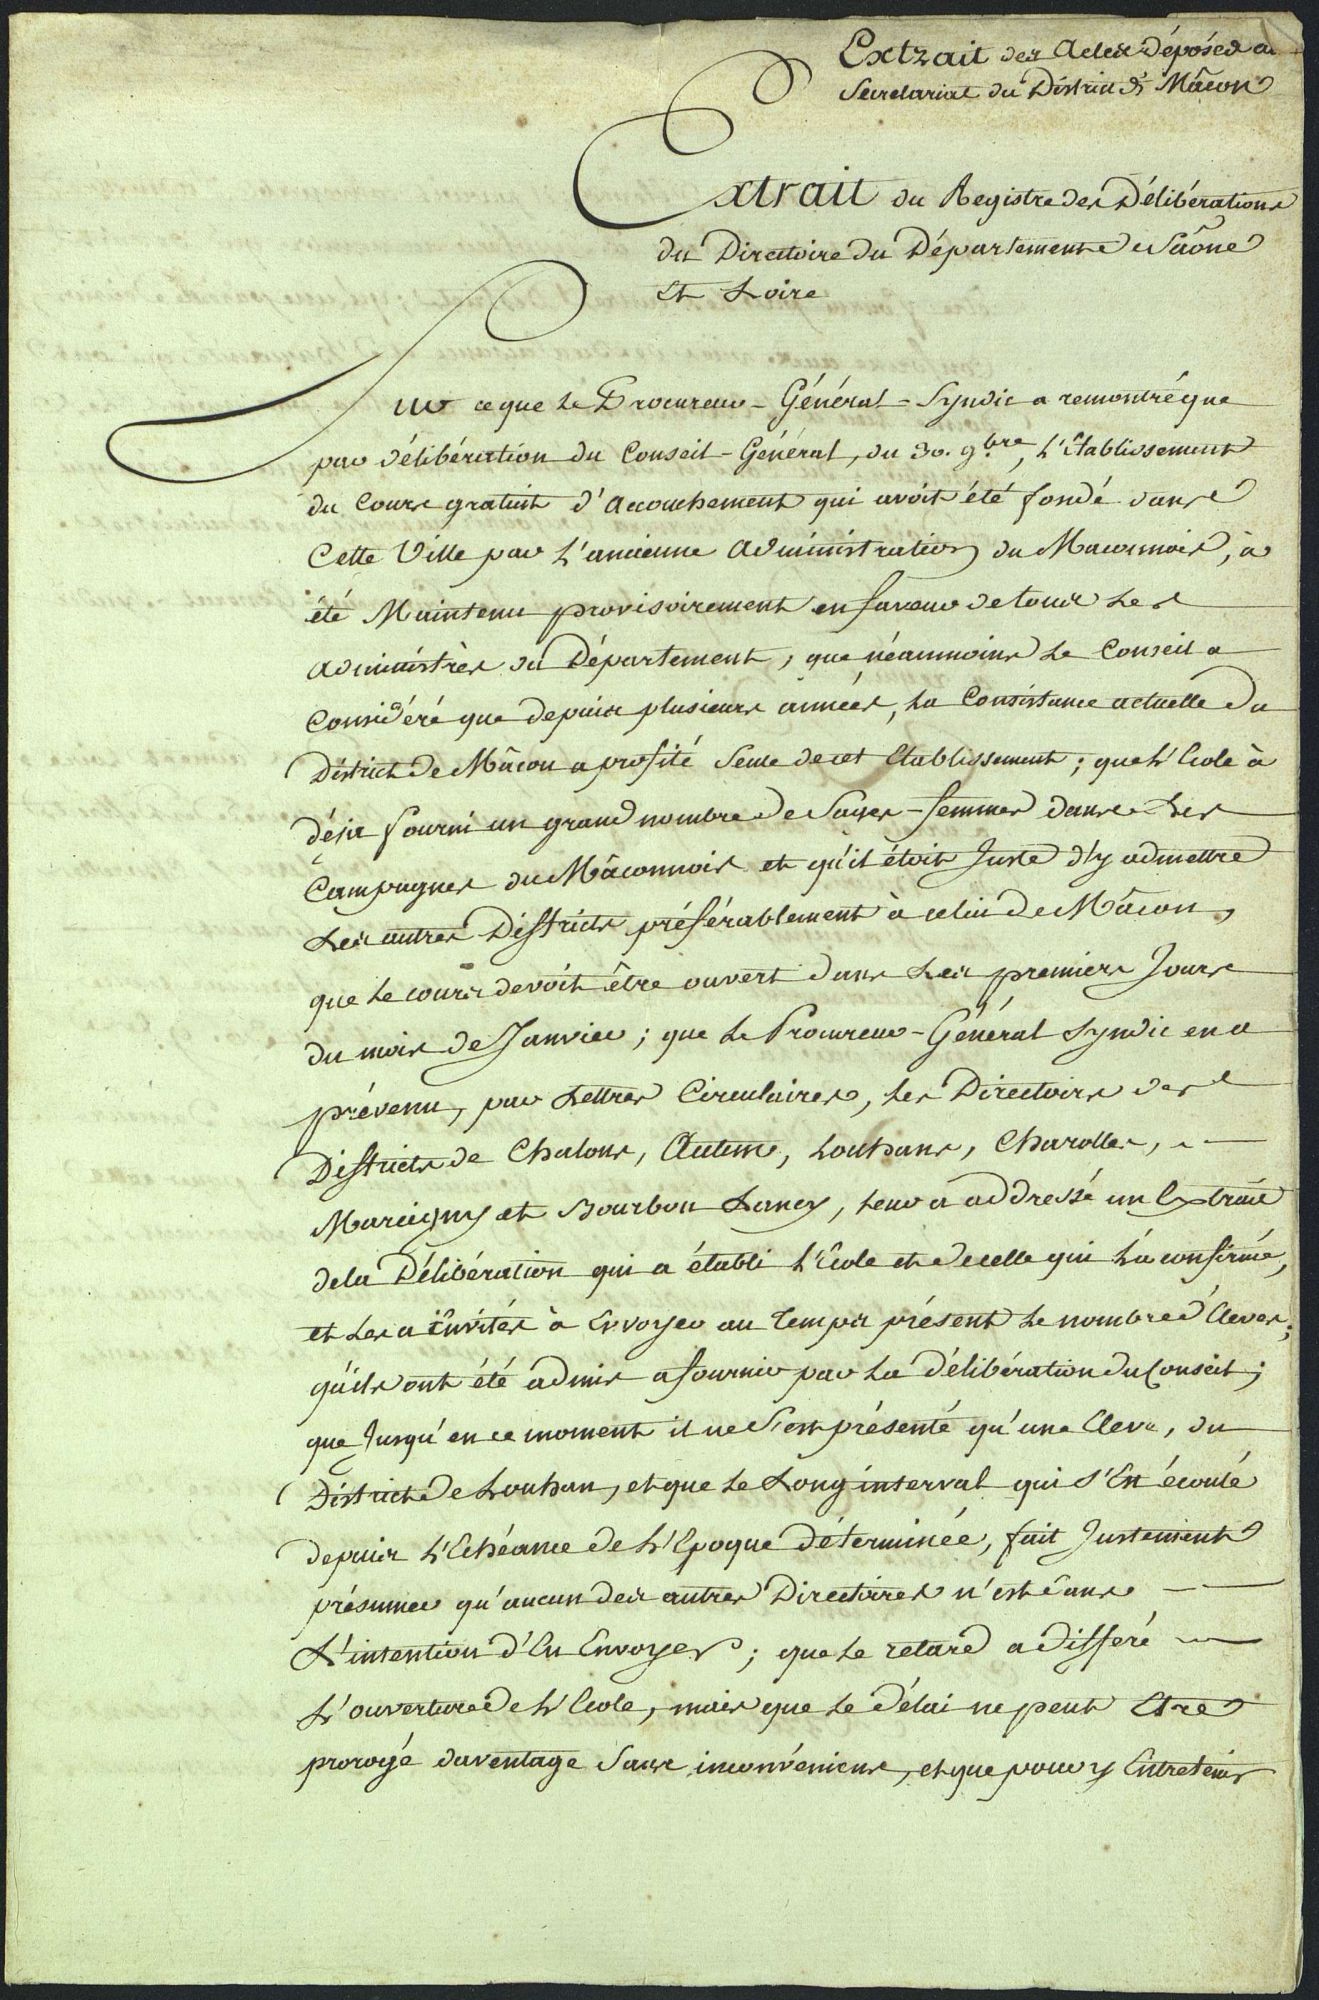 Extrait des Actes déposés au
Secretariat du District de Mâcon
Extrait du Registre des Délibérations
du Directoire du Département de Saône
et Loire
Sur ce que le Procureur-Général-Syndic a remontré que
par délibération du Conseil-Général, du 30. 9.bre, l'Etablissement
du Cours gratuit d'Accouchement qui avoit été fondé dans
Cette Ville par l'ancienne Administration du Maconnois, à
été Maintenu provisoirement en faveur de tous les
Administrés du Département, que néanmoins le Conseil a
Considéré que depuis plusieurs années, la Consistance actuelle du
District de Mâcon a profité Seule de cet Etablissement ; que l'Ecole à
déja fourni un grand nombre de Sages-femmes dans les
Campagnes du Mâconnois et qu'il étoit Juste d'y admettre
Les autres Districts préférablement à celui de Mâcon,
que le cours devoit être ouvert dans les premiers Jours
du mois de Janvier ; que le Procureur-Général Syndic en a
prévenu, par Lettres Circulaires, les Directoirs des
Districts de Chalons, Autun, Louhans, Charolles,
Marcigny et Bourbon Lancy, leur a addressé un Extrait
de la Délibération qui a établi l'Ecole et de celle qui l'a confirmé,
et les a invités à Envoyer au temps présent le nombre d'Eleves,
qu'ils ont été admis a fournir par la délibération du Conseil ;
que Jusqu'en ce moment il ne S'est présenté qu'une Eleve, du
District de Louhan, et que le Long interval qui S'est écoulé
depuis l'Echéance de l'Epoque déterminée, fait Justement
présumer qu'aucun des autres Directoires n'est dans
L'intention d'En Envoyer ; que le retard a différé
L'ouverture de l'Ecole, mais que le délai ne peut Etre
prorogé daventage Sans inconvéniens, et que pour y Entretenir